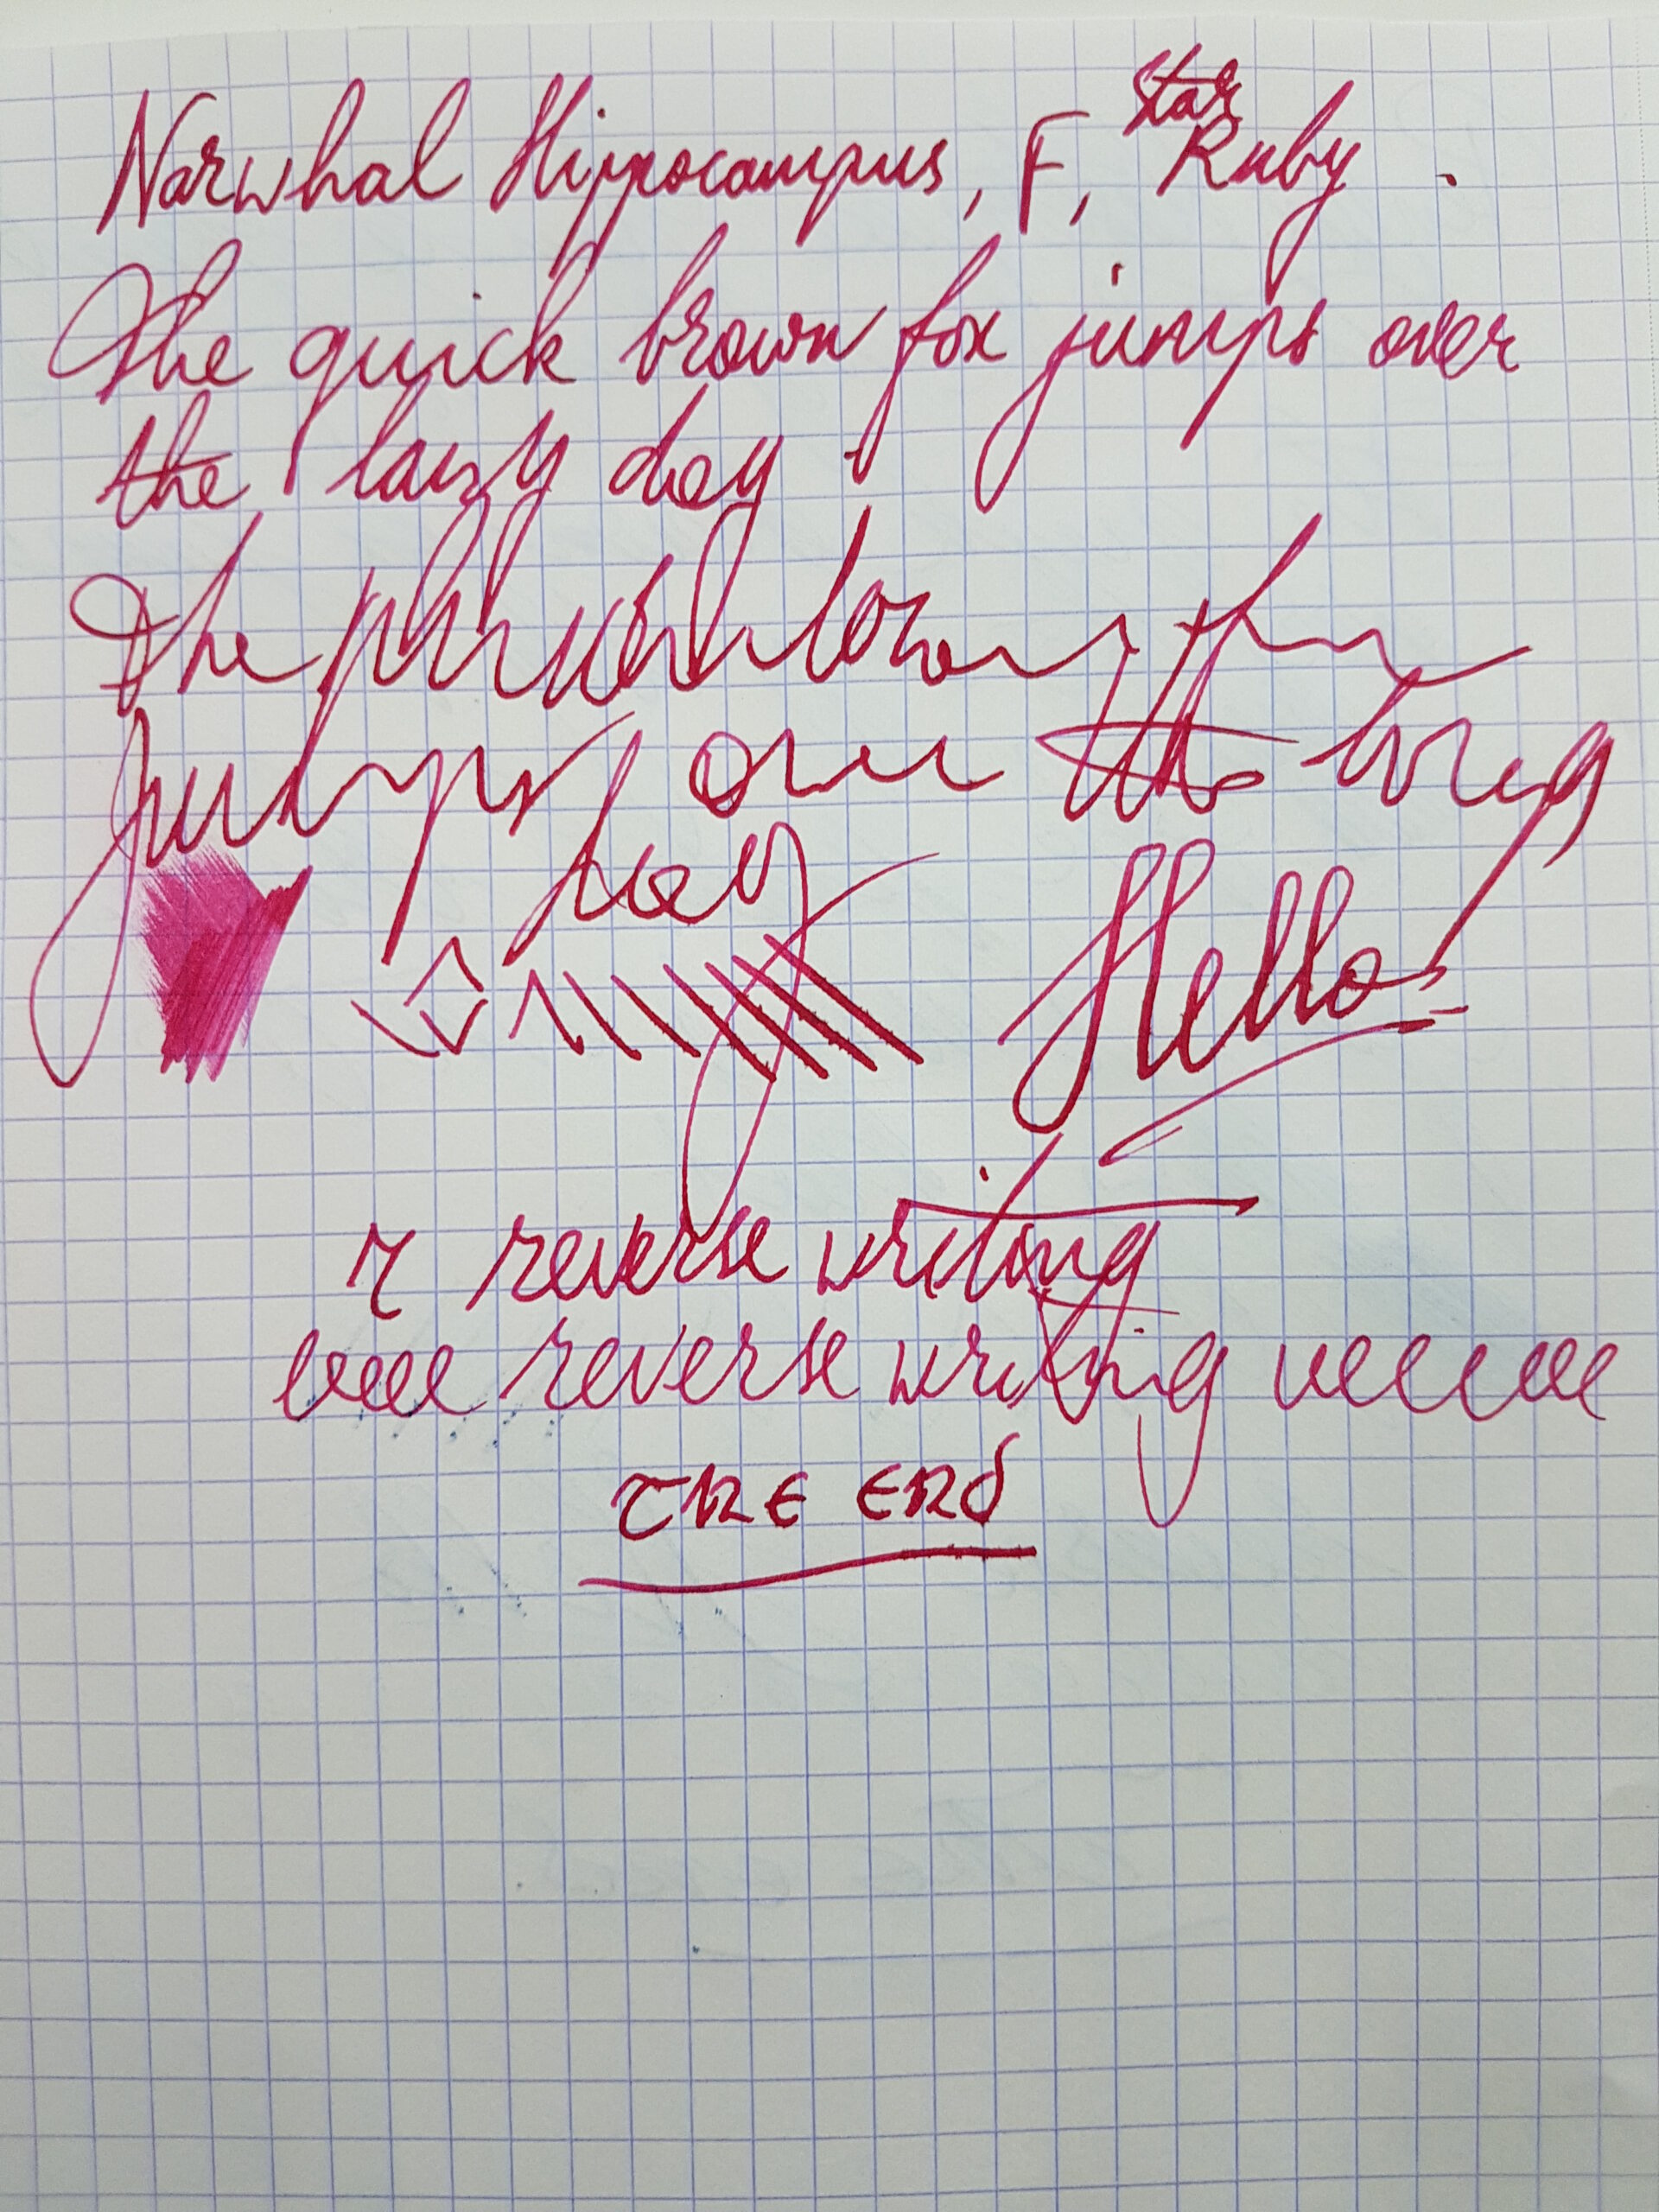 Narwhal Hippocampus, F, Star Ruby.
The quick brown fox jumps over
the lazy dog.
The
jumps over the
Hello!
r reverse writing
eeee reverse writing
THE END